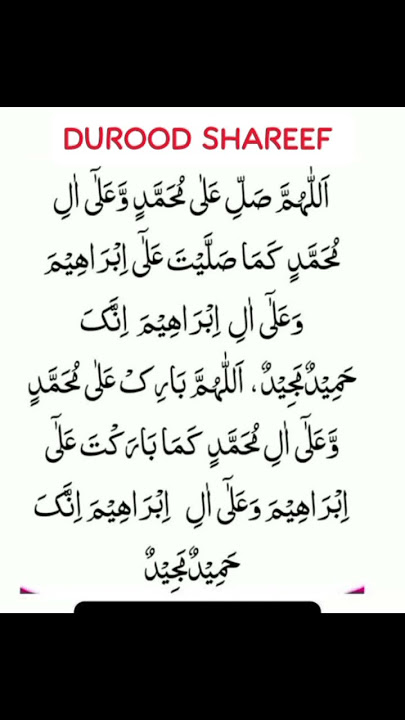 DUROOD SHAREEF
اَللّٰهُمَّ صَلِّ عَلٰی مُحَمَّدٍ وَّعَلٰٓی اٰلِ
مُحَمَّدٍ کَمَا صَلَّیْتَ عَلٰٓی اِبْرَاهِیْمَ
وَعَلٰٓی اٰلِ اِبْرَاهِیْمَ اِنَّکَ
حَمِیْدٌ مَّجِیْدٌ، اَللّٰهُمَّ بَارِکْ عَلٰی مُحَمَّدٍ
وَّعَلٰٓی اٰلِ مُحَمَّدٍ کَمَا بَارَکْتَ عَلٰٓی
اِبْرَاهِیْمَ وَعَلٰٓی اٰلِ اِبْرَاهِیْمَ اِنَّکَ
حَمِیْدٌ مَّجِیْدٌ